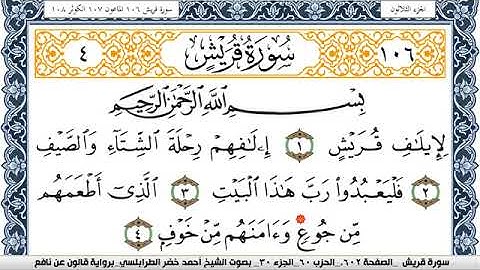 سورة قريش ١٠٦ الماعون ١٠٧ الكوثر ١٠٨ الجزء الثلاثون
٤ سُورَةُ قُرَيْشٍ ١٠٦
بِسْمِ اللَّهِ الرَّحْمَٰنِ الرَّحِيمِ
لِإِيلَٰفِ قُرَيْشٍ ١ إِۦلَٰفِهِمْ رِحْلَةَ الشِّتَآءِ وَالصَّيْفِ
٢ فَلْيَعْبُدُوا رَبَّ هَٰذَا الْبَيْتِ ٣ الَّذِي أَطْعَمَهُم
مِّن جُوعٍ وَءَامَنَهُم مِّنْ خَوْفٍ ٤
سورة قريش _الصفحة ٦٠٢_ الحزب ٦٠_ الجزء ٣٠_ بصوت الشيخ أحمد خضر الطرابلسي_ برواية قالون عن نافع